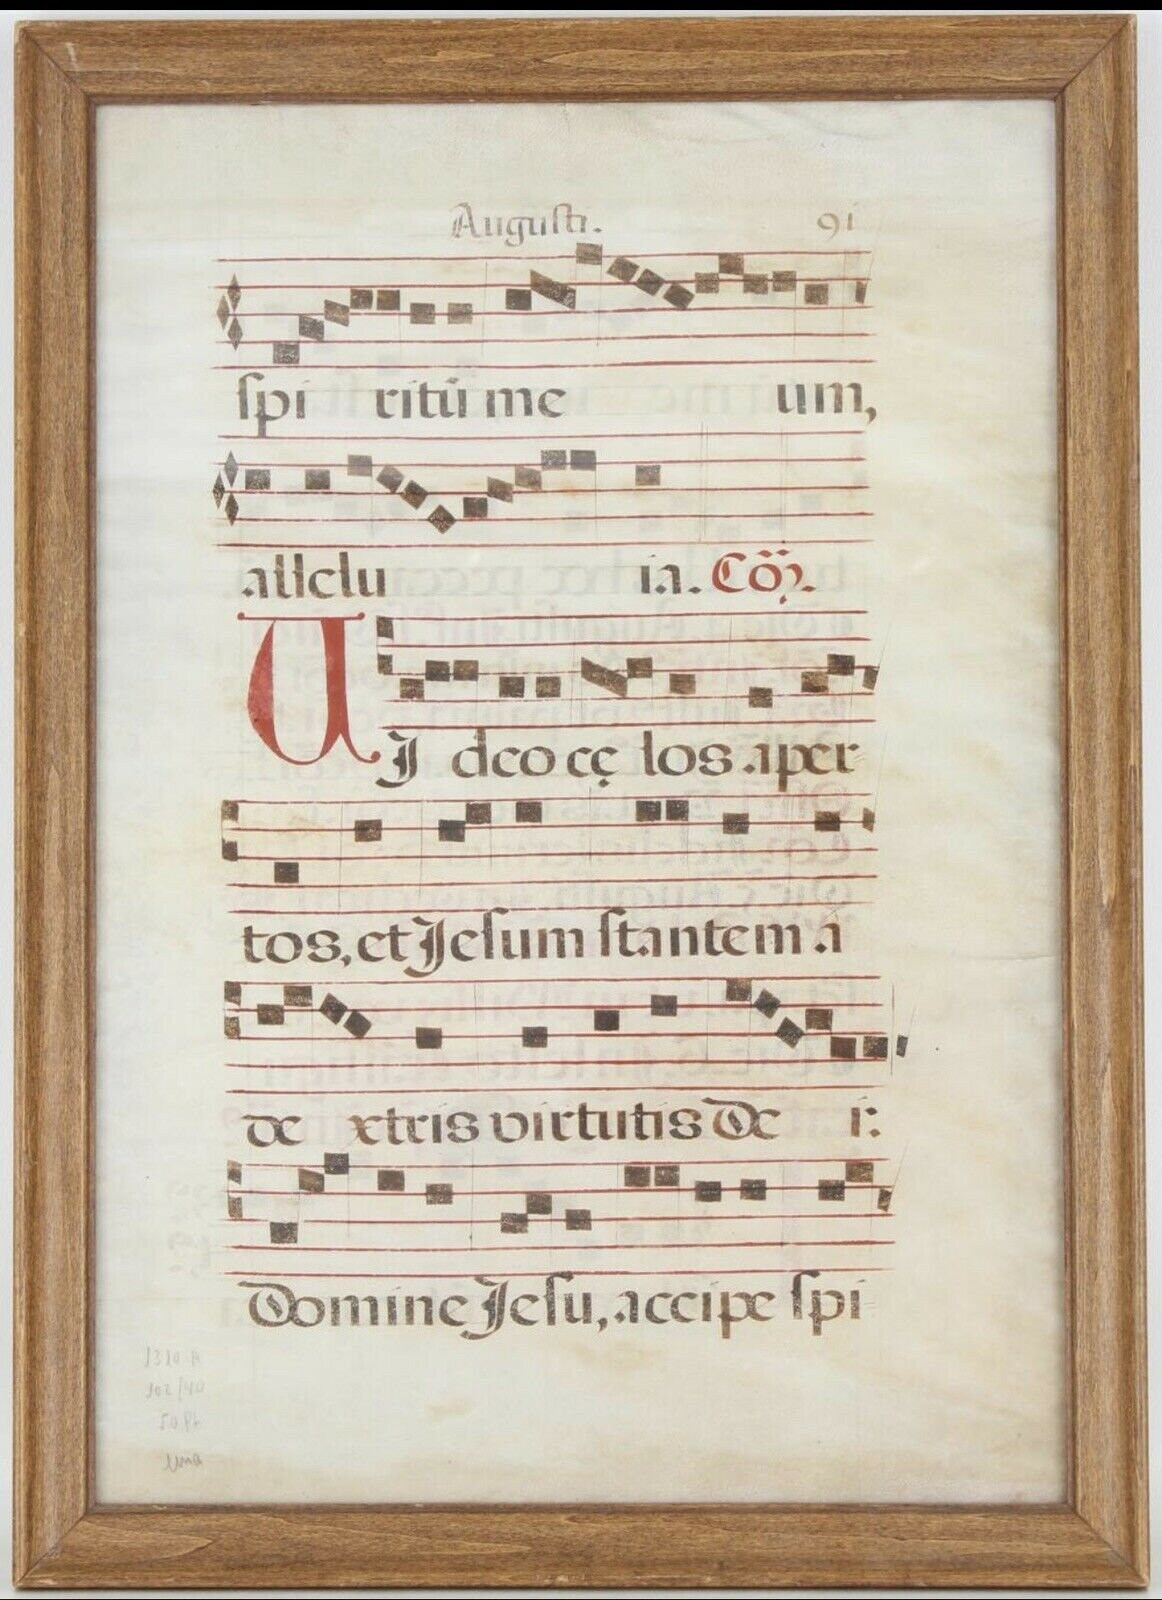 Auguſti. 91
ſpi ritū me um,
allelu ia. Cō̈ꝫ.
VI deo cę los aper
tos, et Jeſum ſtantem a
de xtris virtutis De i:
Domine Jeſu, accipe ſpi